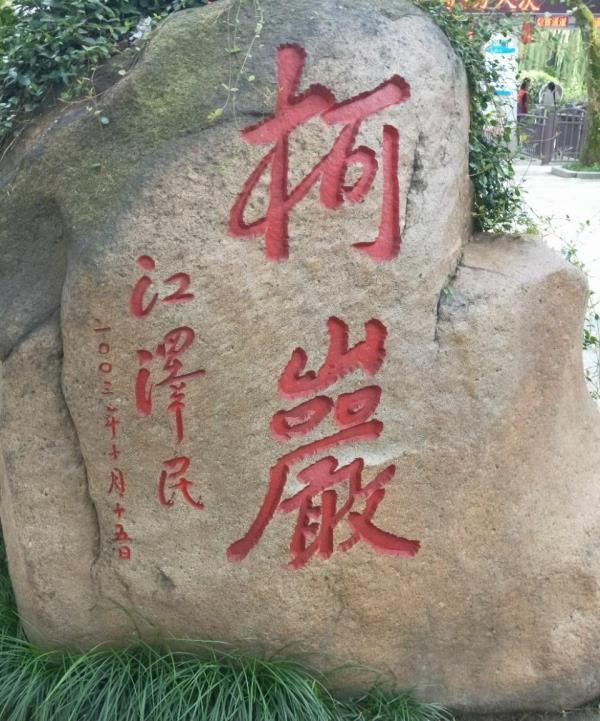 柯巖
江澤民
二〇〇三年十月十五日